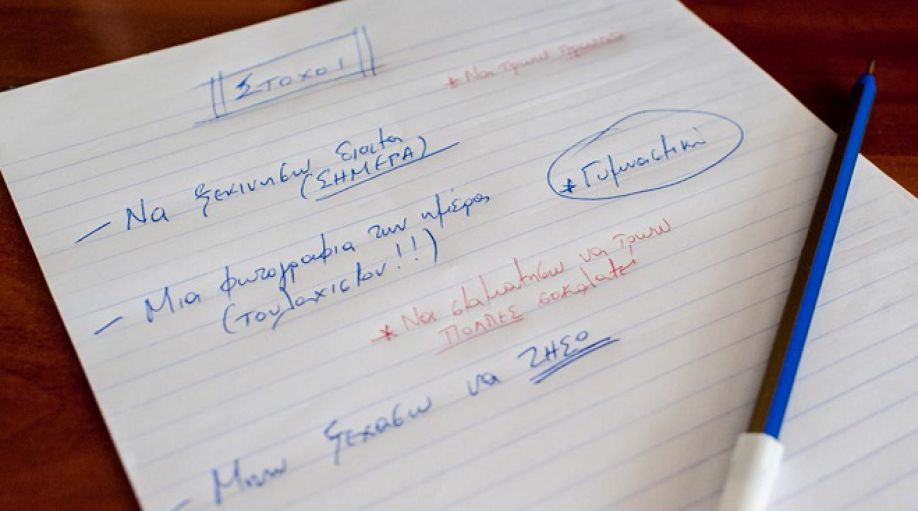 ΣΤΟΧΟΙ
* Να τρωω πρωινό
– Να ξεκινησω διαιτα
(ΣΗΜΕΡΑ)
* Γυμναστική
– Μια φωτογραφια την ημέρα
(τουλαχιστον!!!)
* Να σταματησω να τρωω
ΠΟΛΛΕΣ σοκολατες
– Μην ξεχασω να ΖΗΣΩ